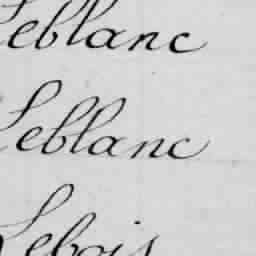 Leblanc
Leblanc
Lebois